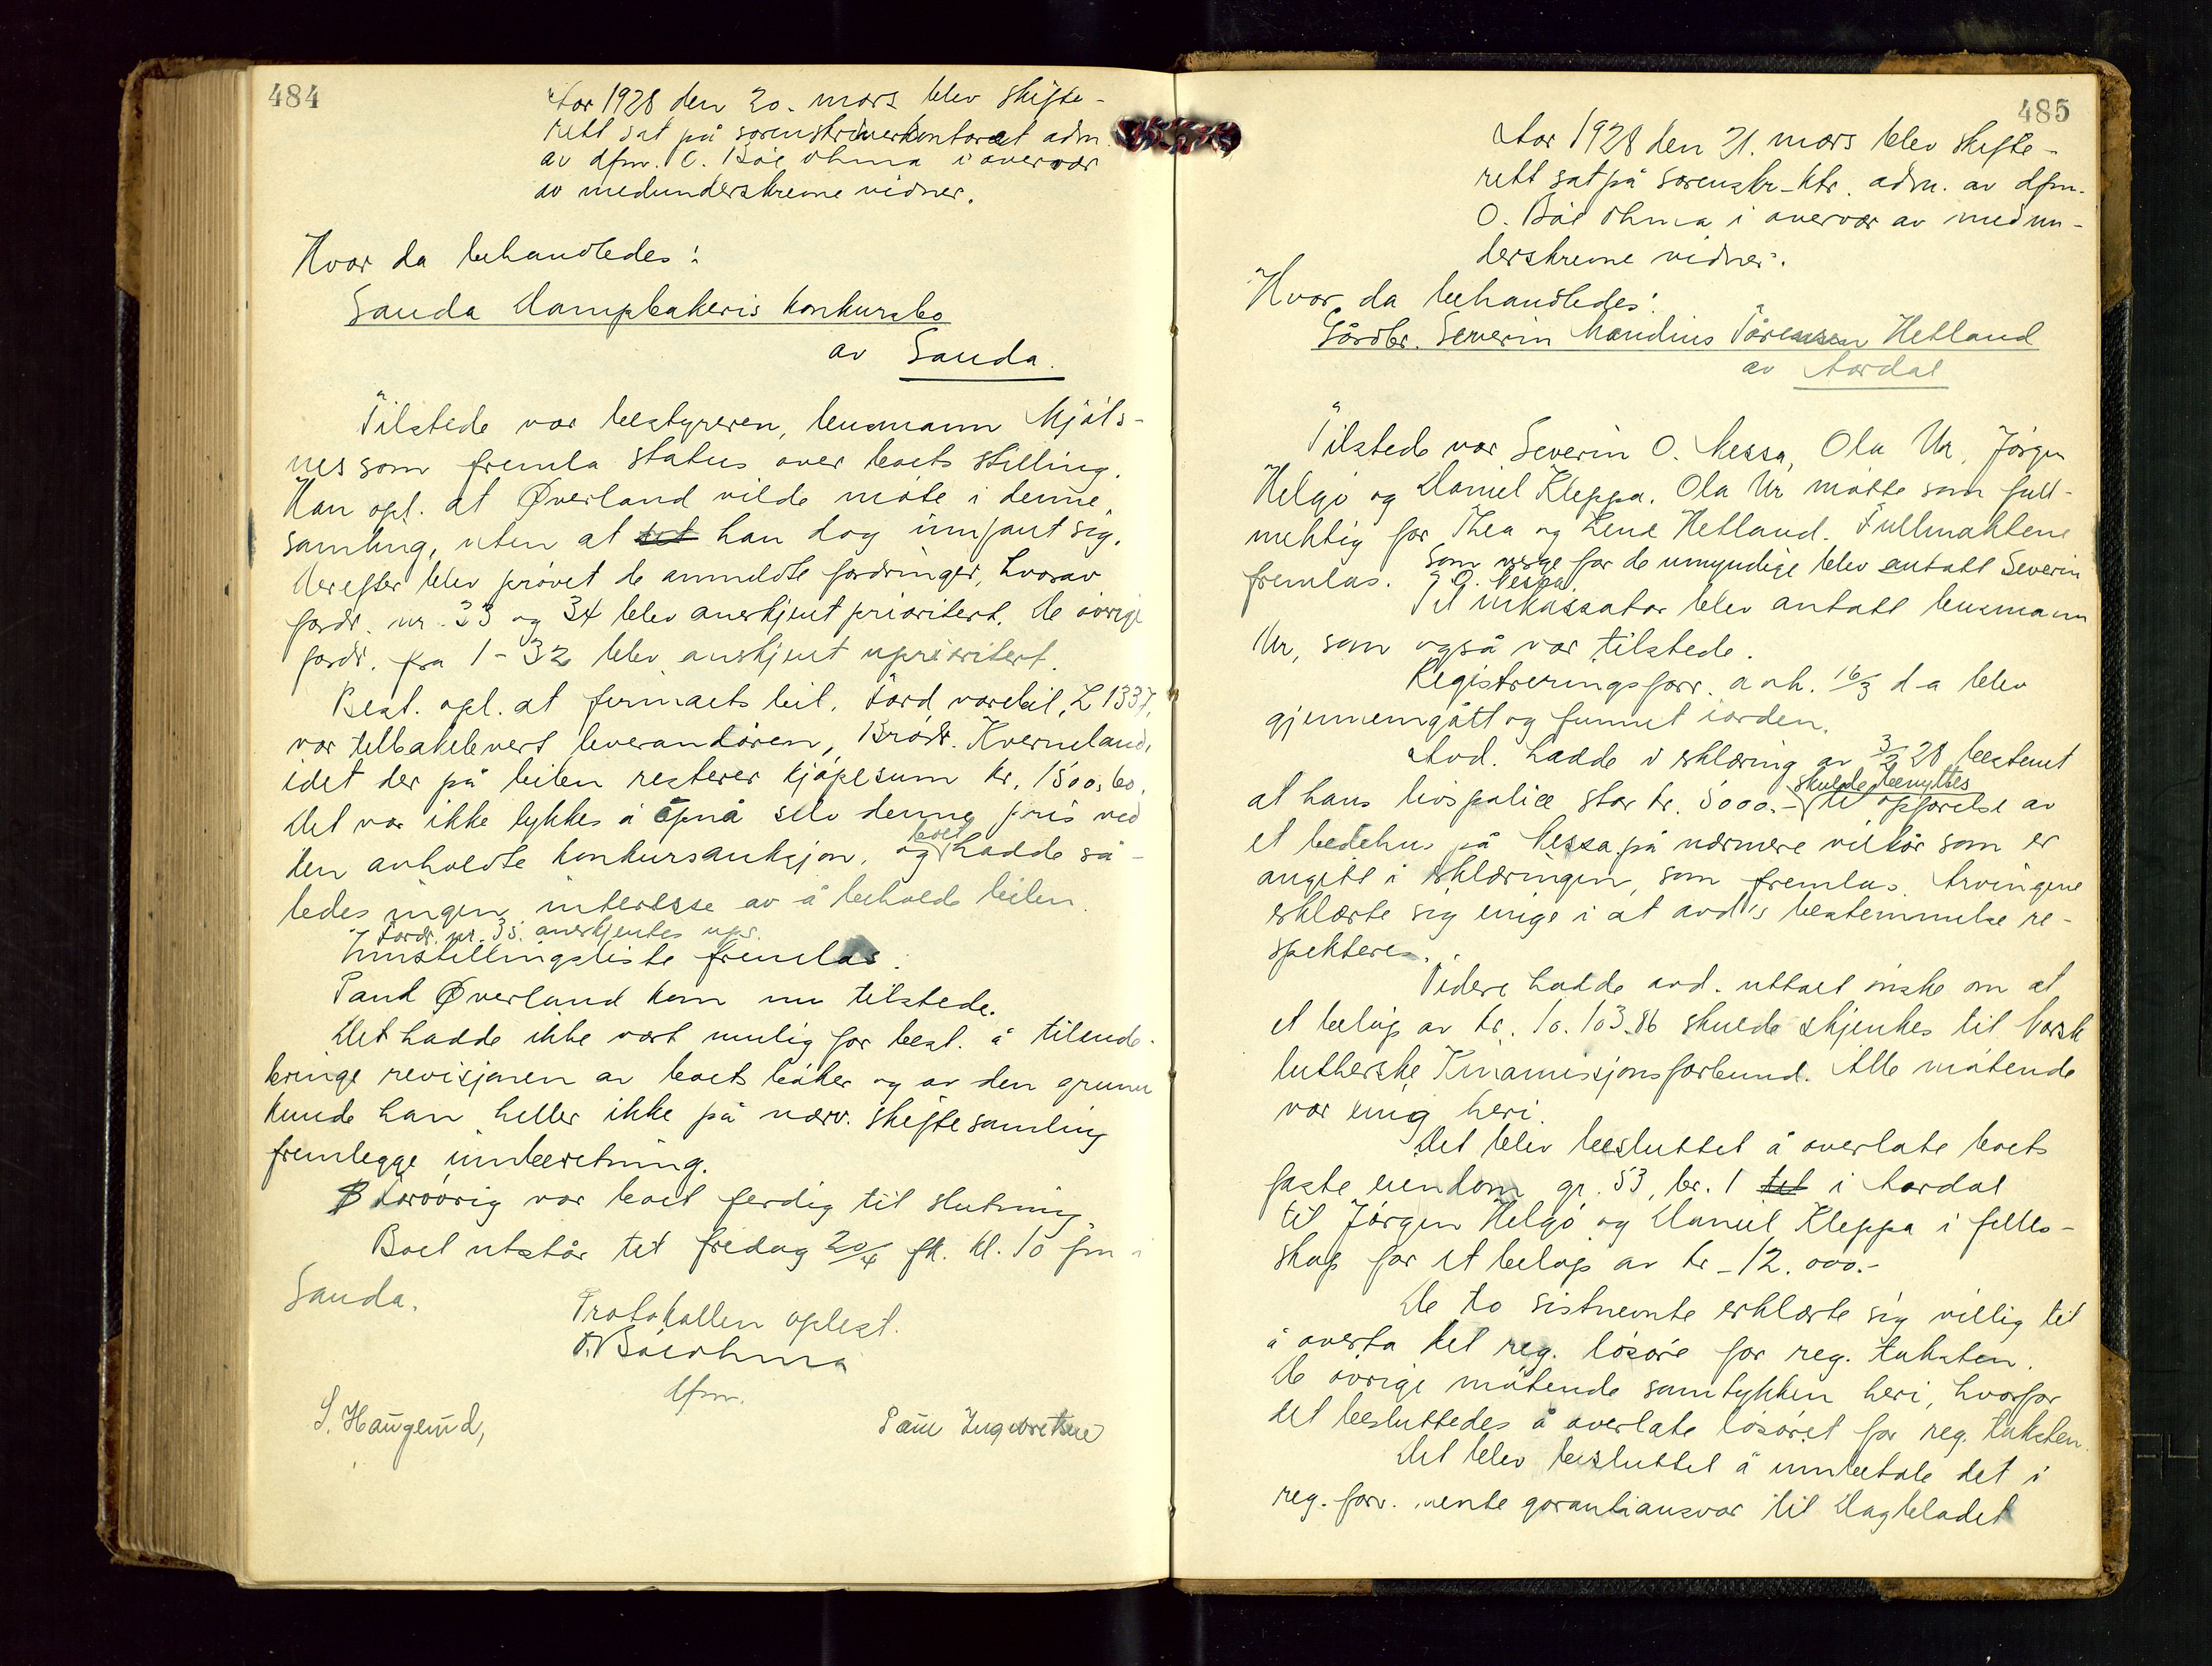 484
Aar 1928 den 20. mars blev skifte-
rett sat på sorenskriverkontoret adm.
av dfm. O. Bøe Ohma i overvær
av medunderskrevne vidner.
Hvor da behandledes:
Sauda Dampbakeris konkursbo
av Sauda.
Tilstede var bestyreren, lensmann Mjøls-
nes som fremla status over boets stilling.
Han opl. at Øverland vilde møte i denne
samling, uten at han dog innfant sig.
Derefter blev prøvet de anmeldte fordringer, hvorav
fordr. nr. 33 og 34 blev anerkjent prioritert. De øvrige
fordr. fra 1-32 blev anerkjent uprioritert.
Best. opl. at firmaets bil, Ford varebil, L 1337,
var tilbakelevert leverandøren, Brødr. Kverneland,
idet der på bilen resterer kjøpesum kr. 1500,60.
Det var ikke lykkes å opnå selv denne pris ved
den avholdte konkursauksjon, og boet hadde så-
ledes ingen interesse av å beholde bilen.
Fordr. nr. 35. anerkjentes upr.
Innstillingsliste fremlas.
Paul Øverland kom nu tilstede.
Det hadde ikke vært mulig for best. å tilende-
bringe revisjonen av boets bøker og av den grunn
kunde han heller ikke på nærv. skiftesamling
fremlegge innberetning.
Forøvrig var boet ferdig til slutning.
Boet utstår til fredag 20/4 fk. kl. 10 fm i
Sauda.
Protokollen oplest.
O. Bøe Ohma
dfm.
S. Haugeund,
Pam Ingvoretsen
485
Aar 1928 den 21. mars blev skifte-
rett sat på sorenskr.ktr. adm. av dfm.
O. Bøe Ohma i overvær av medun-
derskrevne vidner.
Hvor da behandledes:
Gårdbr. Severin Mandius Tørensen Hetland
av Aardal
Tilstede var Severin O. Nessa, Ola Ur, Jörgen
Helgö og Daniel Kleppa. Ola Ur møtte som full-
mektig for Thea og Lene Hetland. Fullmaktene
fremlas. Som verge for de umyndige blev antatt Severin
O. Nessa.
Til inkassator blev antatt lensmann
Ur, som også var tilstede.
Registreringsforr. avh. 16/3 d-a blev
gjennemgått og funnet iorden.
Avd. hadde i erklæring av 3/2 28 bestemt
at hans livspolice stor kr. 5000.- skulde benyttes til opførelse av
et bedehus på Nessa på nærmere vilkår som er
angitt i erklæringen, som fremlas. Arvingene
erklærte sig enige i at avd's bestemmelse re-
spekteres.
Videre hadde avd. uttalt ønske om at
et beløp av kr. 10.103.86 skulde skjenkes til Norsk
lutherske Kinamisjonsforbund. Alle møtende
var enig heri.
Det blev besluttet å overlate boets
faste eiendom gr. 53, br. 1 i Aardal
til Jörgen Helgö og Daniel Kleppa i felles-
skap for et beløp av kr. 12.000.-
De to sistnevnte erklærte sig villig til
å overta det reg. løsøre for reg. taksten.
De øvrige møtende samtykken heri, hvorfor
det besluttedes å overlate løsøret for reg. taksten.
Det blev besluttet å innbetale det i
reg. forr. nevnte garantiansvar til Dagbladet